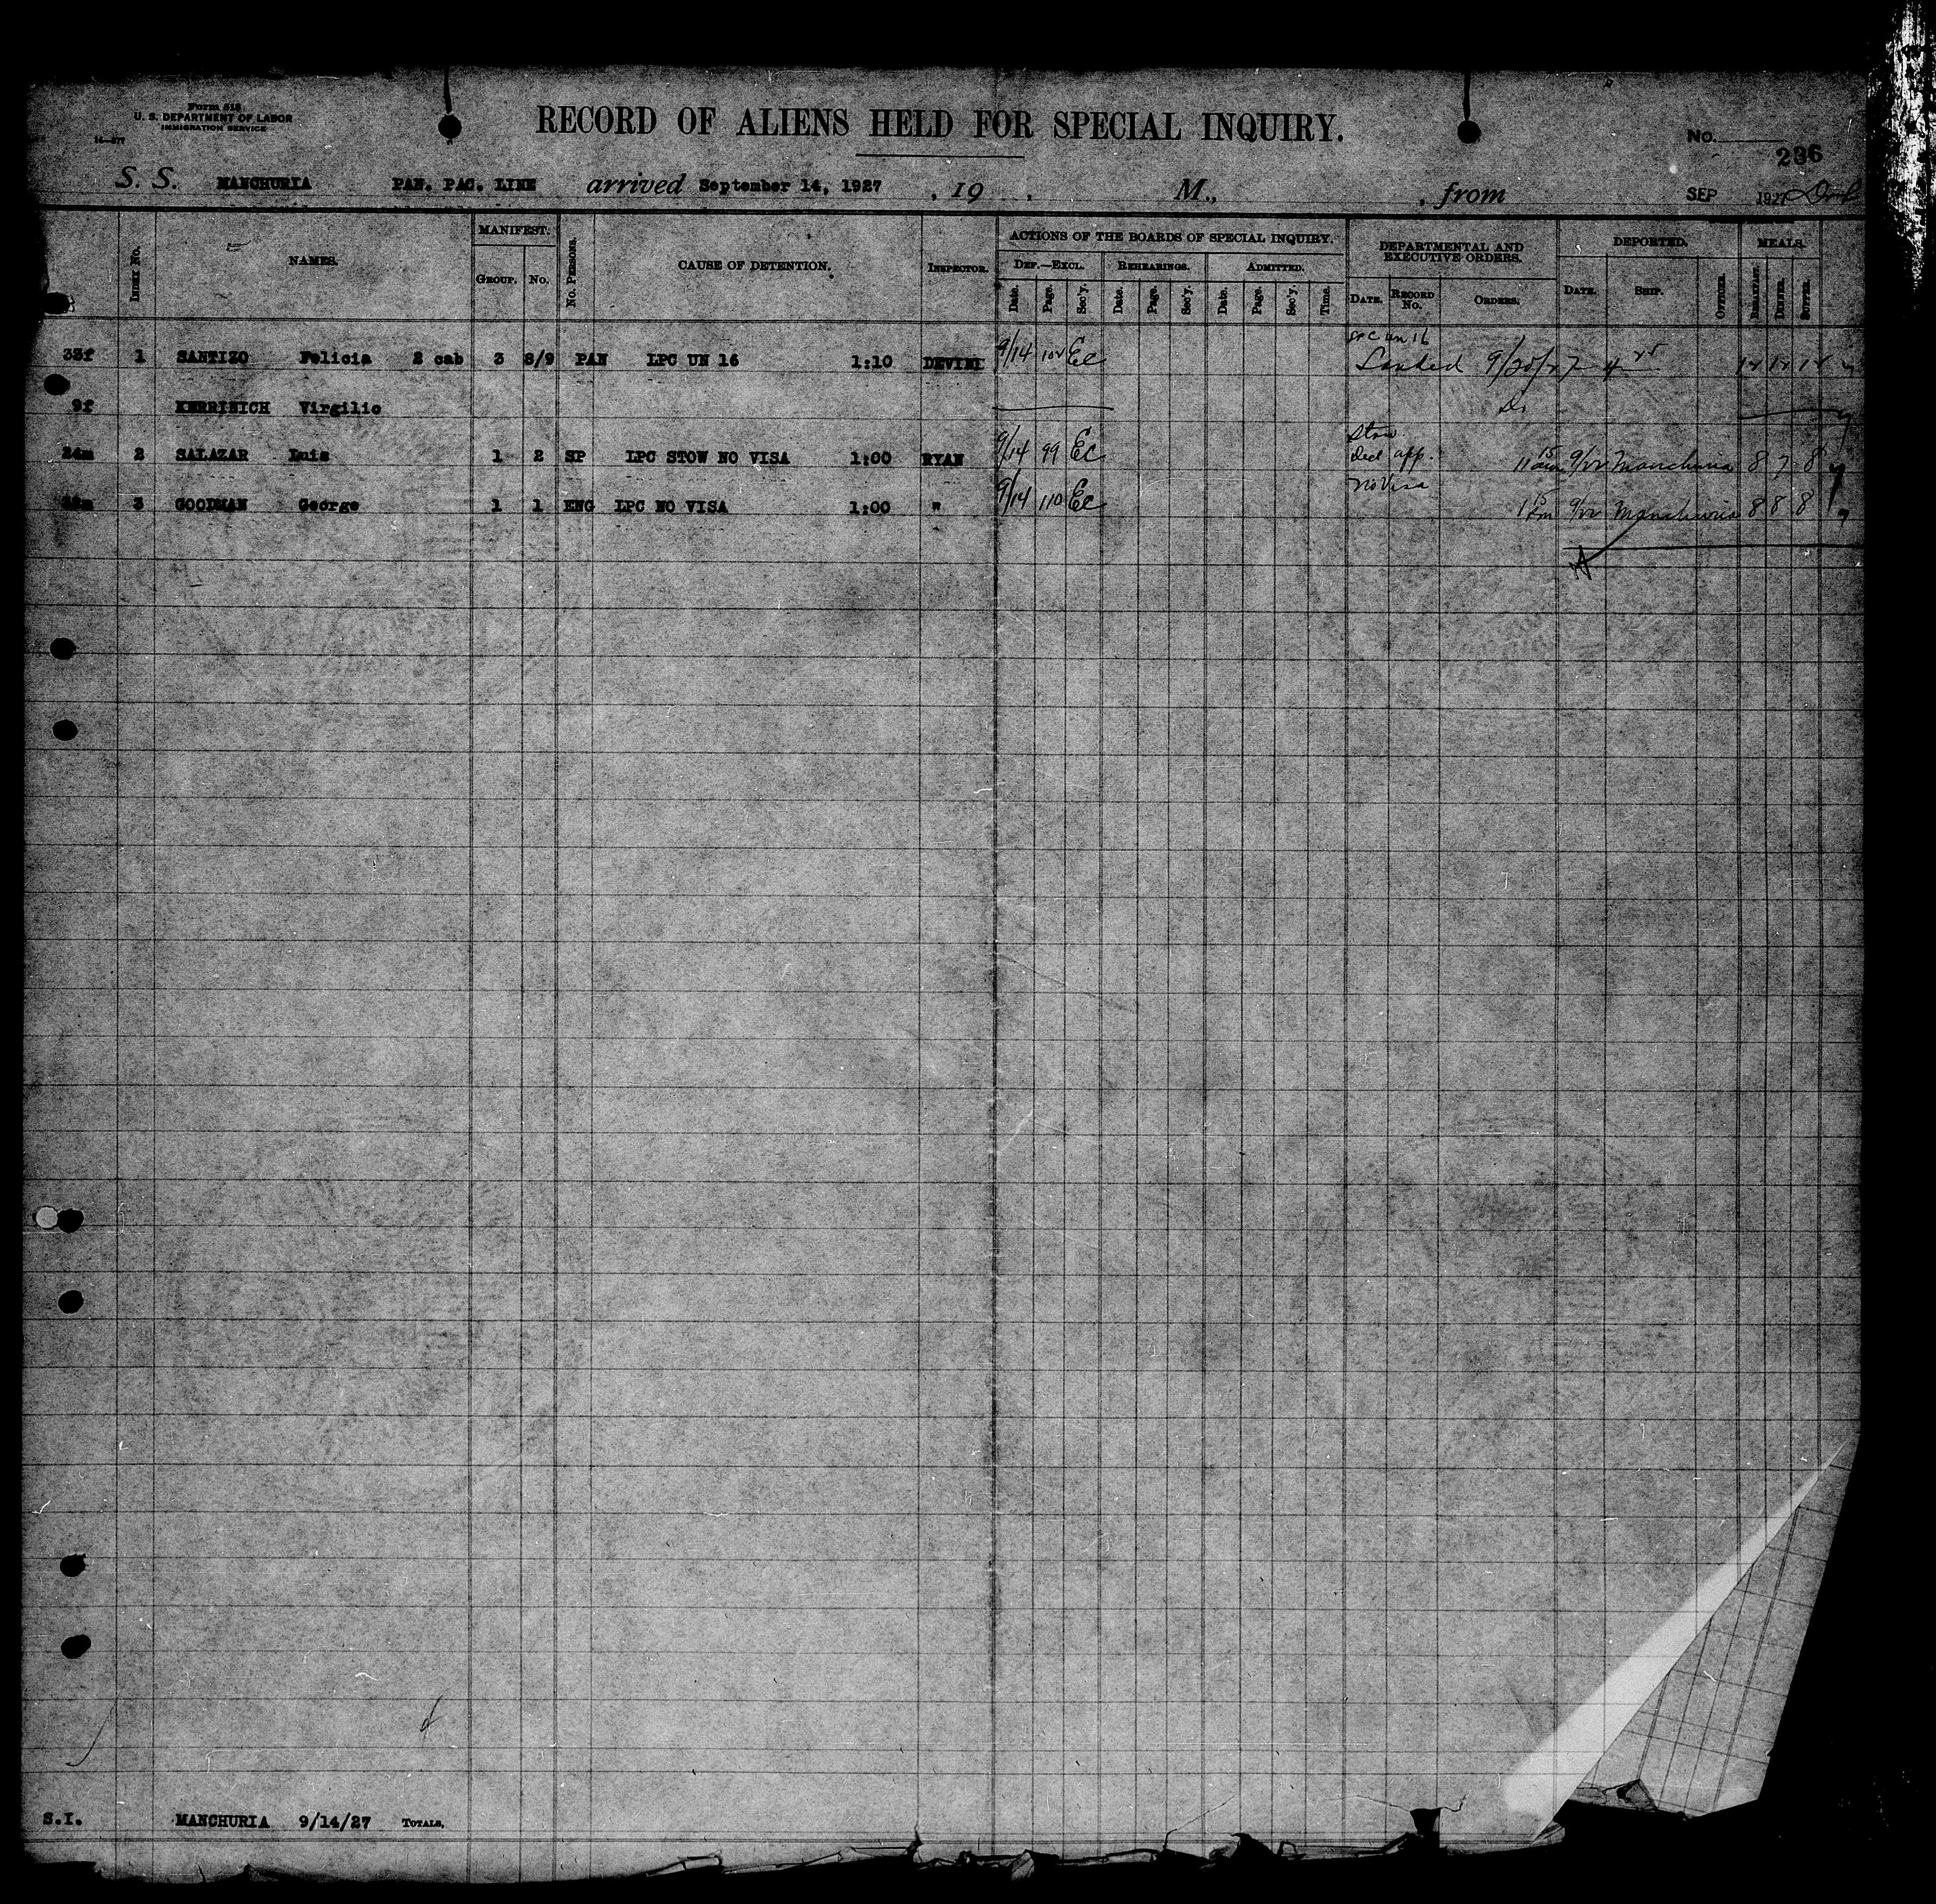 Form 518
U. S. DEPARTMENT OF LABOR
IMMIGRATION SERVICE
14—577
RECORD OF ALIENS HELD FOR SPECIAL INQUIRY.
No.
236
S. S. MANCHURIA PAN. PAC. LINE arrived September 14, 1927 , 19 , M., , from SEP 1927
INDEX No.
NAMES.
MANIFEST.
GROUP. No.
No. PERSONS.
CAUSE OF DETENTION.
INSPECTOR.
ACTIONS OF THE BOARDS OF SPECIAL INQUIRY.
DEF.—EXCL. REHEARINGS. ADMITTED.
Date. Page. Sec'y. Date. Page. Sec'y. Date. Page. Sec'y. Time.
DEPARTMENTAL AND EXECUTIVE ORDERS.
DATE. RECORD No. ORDERS.
DEPORTED.
DATE. SHIP. OFFICER.
MEALS.
BREAKFAST. DINNER. SUPPER.
LPC un 16
33f 1 SANTIZO Felicia 2 cab 3 8/9 PAN LPC UN 16 1:10 DEVINE 9/14 102 EC Landed 9/20/27
9f KERRINICH Virgilio
Stow
24m 2 SALAZAR Luis 1 2 SP LPC STOW NO VISA 1:00 RYAN 9/14 99 EC Decl app. 11 15 am 9/22 Manchuria 8 7 8
No Visa
3 GOODMAN George 1 1 ENG LPC NO VISA 1:00 " 9/14 110 EC 9/22 Manchuria 8 8 8
S.I. MANCHURIA 9/14/27 TOTALS,